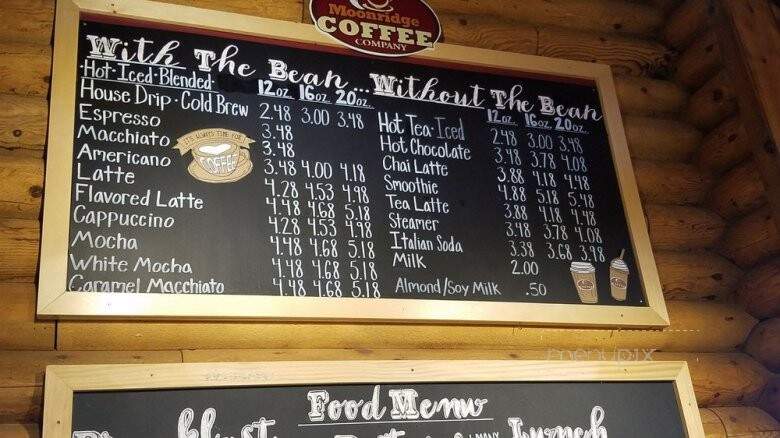 Moonridge
COFFEE
COMPANY
With The Bean... Without The Bean
·Hot·Iced·Blended· 12oz. 16oz. 20oz.
House Drip · Cold Brew 2.48 3.00 3.48
Espresso 3.48
Macchiato 3.48
Americano 3.48 4.00 4.18
Latte 4.28 4.53 4.98
Flavored Latte 4.48 4.68 5.18
Cappuccino 4.28 4.53 4.98
Mocha 4.48 4.68 5.18
White Mocha 4.48 4.68 5.18
Caramel Macchiato 4.48 4.68 5.18
IT'S ALWAYS TIME FOR
COFFEE
12oz. 16oz. 20oz.
Hot Tea·Iced 2.48 3.00 3.48
Hot Chocolate 3.48 3.78 4.08
Chai Latte 3.88 4.18 4.48
Smoothie 4.88 5.18 5.48
Tea Latte 3.88 4.18 4.48
Steamer 3.48 3.78 4.08
Italian Soda 3.38 3.68 3.98
Milk 2.00
Almond/Soy Milk .50
menupix
Food Menu
Lunch